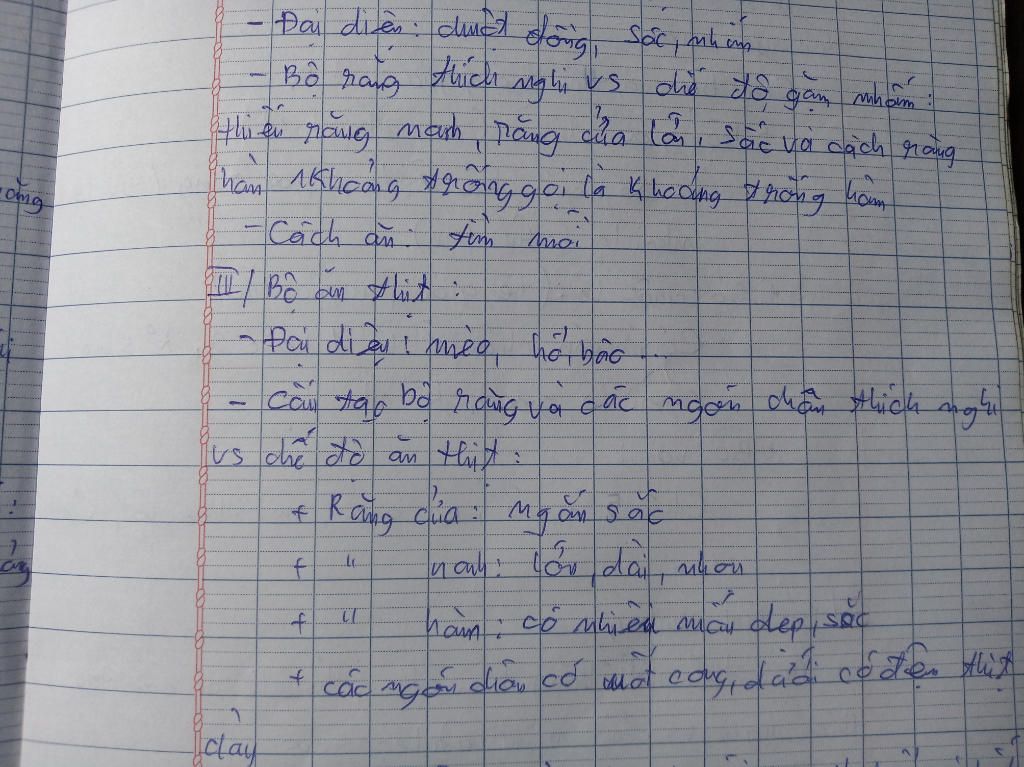 - Đại diện: chuột đồng, sóc, nhím
- Bộ răng thích nghi vs chế độ gặm nhấm:
thiếu răng nanh, răng cửa lớn, sắc và cách răng
hàm 1 khoảng trống gọi là khoảng trống hàm
- Cách ăn: tìm mồi
III/ Bộ ăn thịt:
- Đại diện: mèo, hổ, báo ...
- Cấu tạo bộ răng và các ngón chân thích nghi
vs chế độ ăn thịt:
+ Răng cửa: ngắn sắc
+ " nanh: lớn, dài, nhọn
+ " hàm: có nhiều mấu dẹp, sắc
+ các ngón chân có vuốt cong, dưới có đệm thịt
dày